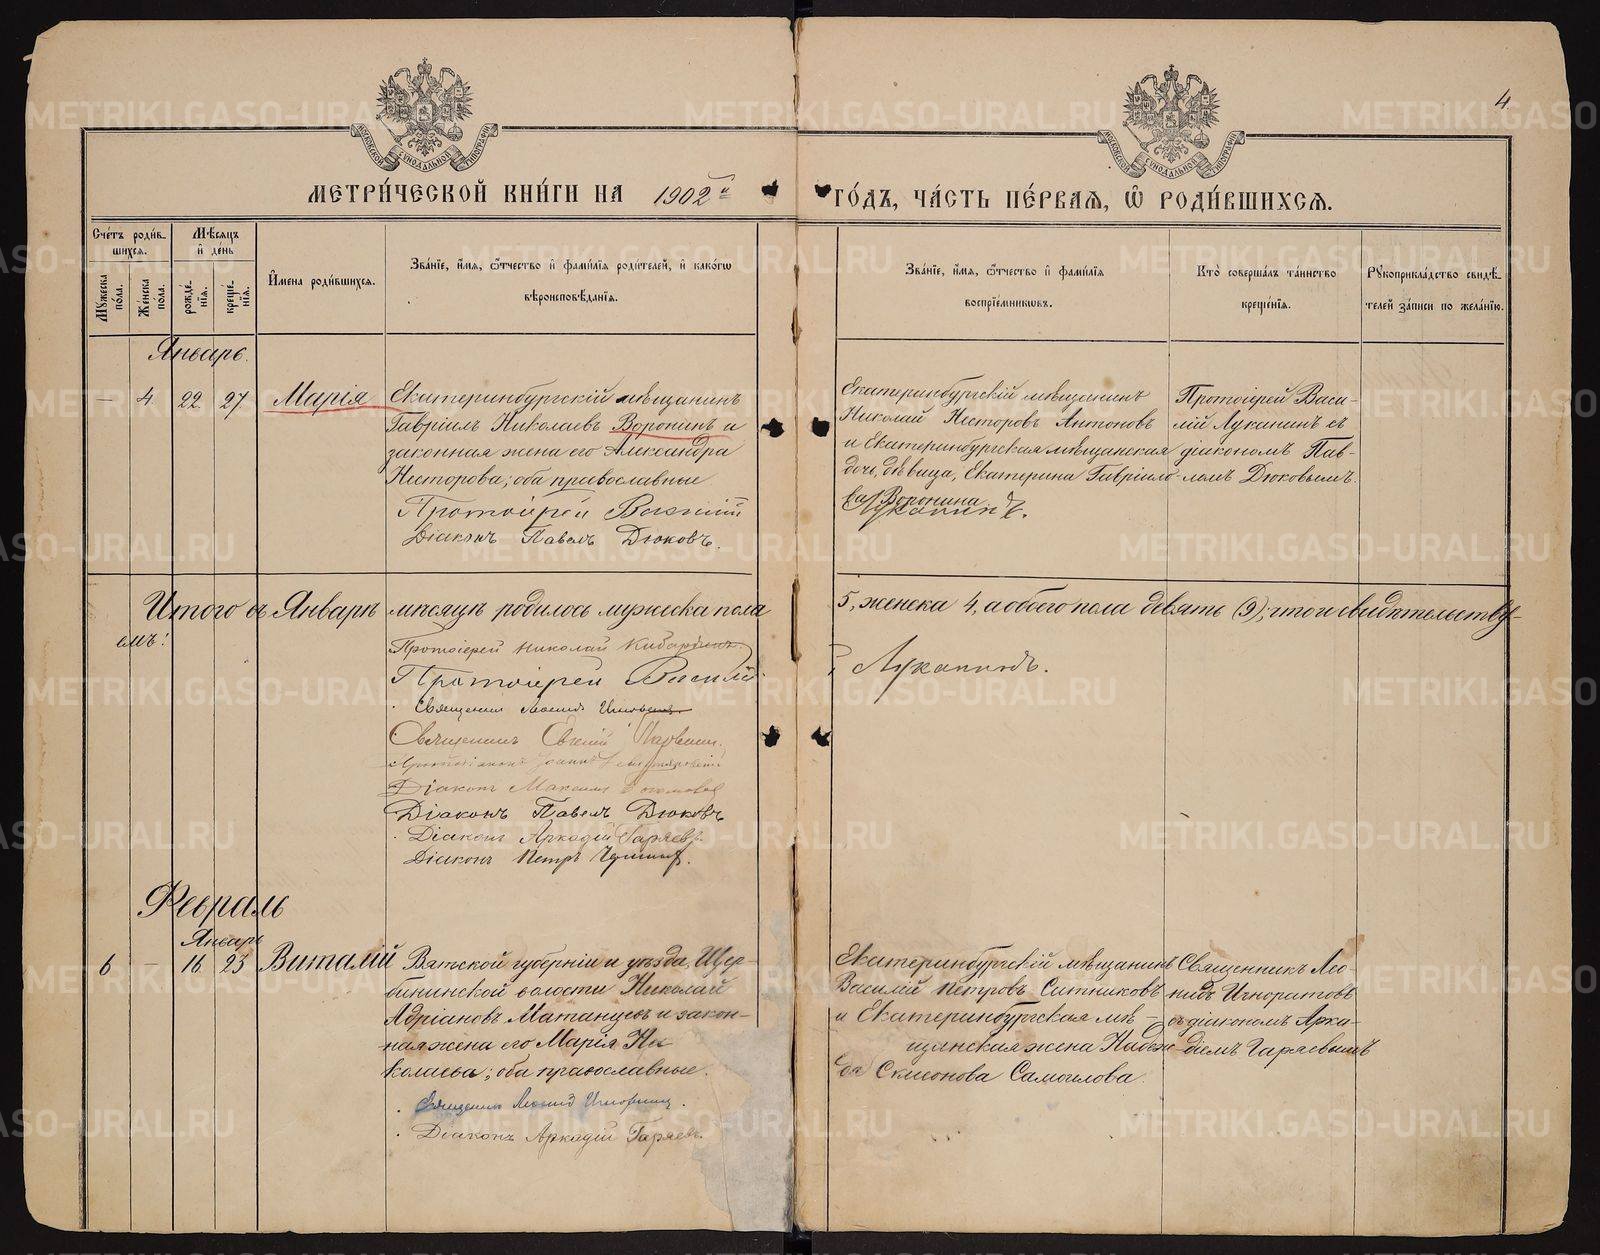 4
МЕТРИ́ЧЕСКОЙ КНИ́ГИ НА 1902 й
ГО́ДЪ, ЧА́СТЬ ПЕ́РВАѦ, Ѡ҆ РОДИ́ВШИХСѦ.
МОСКОВСКОЙ СѴНОДАЛЬНОЙ ТИПОГРАФІИ
МОСКОВСКОЙ СѴНОДАЛЬНОЙ ТИПОГРАФІИ
Сче́тъ роди́вшихсѧ.
Мꙋ́жеска по́ла.
Же́нска по́ла.
Мѣ́сѧцъ и҆ де́нь
рожде́нїѧ.
креще́нїѧ.
И҆мена роди́вшихсѧ.
Зва́нїе, и҆́мѧ, ѻ҆́тчество и҆ фами́лїѧ роди́телей, и҆ како́гѡ
вѣроисповѣ́данїѧ.
Зва́нїе, и҆́мѧ, ѻ҆́тчество и҆ фами́лїѧ
воспрїе́мниковъ.
Кто̀ соверша́лъ та́инство
креще́нїѧ.
Рꙋкоприкла́дство свидѣ́-
телей за́писи по жела́нїю.
Январь.
— 4. 22. 27. Марія
Екатеринбургскій мѣщанинъ
Гавріилъ Николаевъ Воронинъ и
законная жена его Александра
Несторова; оба православные
Протоіерей Василій
Діаконъ Павелъ Дюковъ.
Екатеринбургскій мѣщанинъ
Николай Несторовъ Антоновъ
и Екатеринбургская мѣщанская
дочь, дѣвица, Екатерина Гавріило-
ва Воронина.
Луканинъ.
Протоіерей Васи-
лій Луканинъ съ
діакономъ Пав-
ломъ Дюковымъ.
Итого въ Январѣ мѣсяцѣ родилось мужеска пола 5, женска 4, а обоего пола девять (9); что и свидѣтельству-
емъ:
Протоіерей Николай
Протоіерей Василій Луканинъ.
Священникъ Леонидъ Игноратовъ
Священникъ Евгеній
Діаконъ Максимъ
Діаконъ Павелъ Дюковъ
Діаконъ Аркадій Гаряевъ.
Діаконъ Петръ
Февраль
Январь
6 — 16 23 Виталій
Вятской губерніи и уѣзда, Щер-
бининской волости Николай
Адріановъ Матанцевъ и закон-
ная жена его Марія Ни-
колаева; оба православные.
Священникъ Леонидъ Игноратовъ.
Діаконъ Аркадій Гаряевъ.
Екатеринбургскій мѣщанинъ
Василій Петровъ Ситниковъ
и Екатеринбургская мѣ-
щанская жена Надеж-
да Самоилова.
Священникъ Лео-
нидъ Игноратовъ
съ діакономъ Арка-
діемъ Гаряевымъ
METRIKI.GASO-URAL.RU